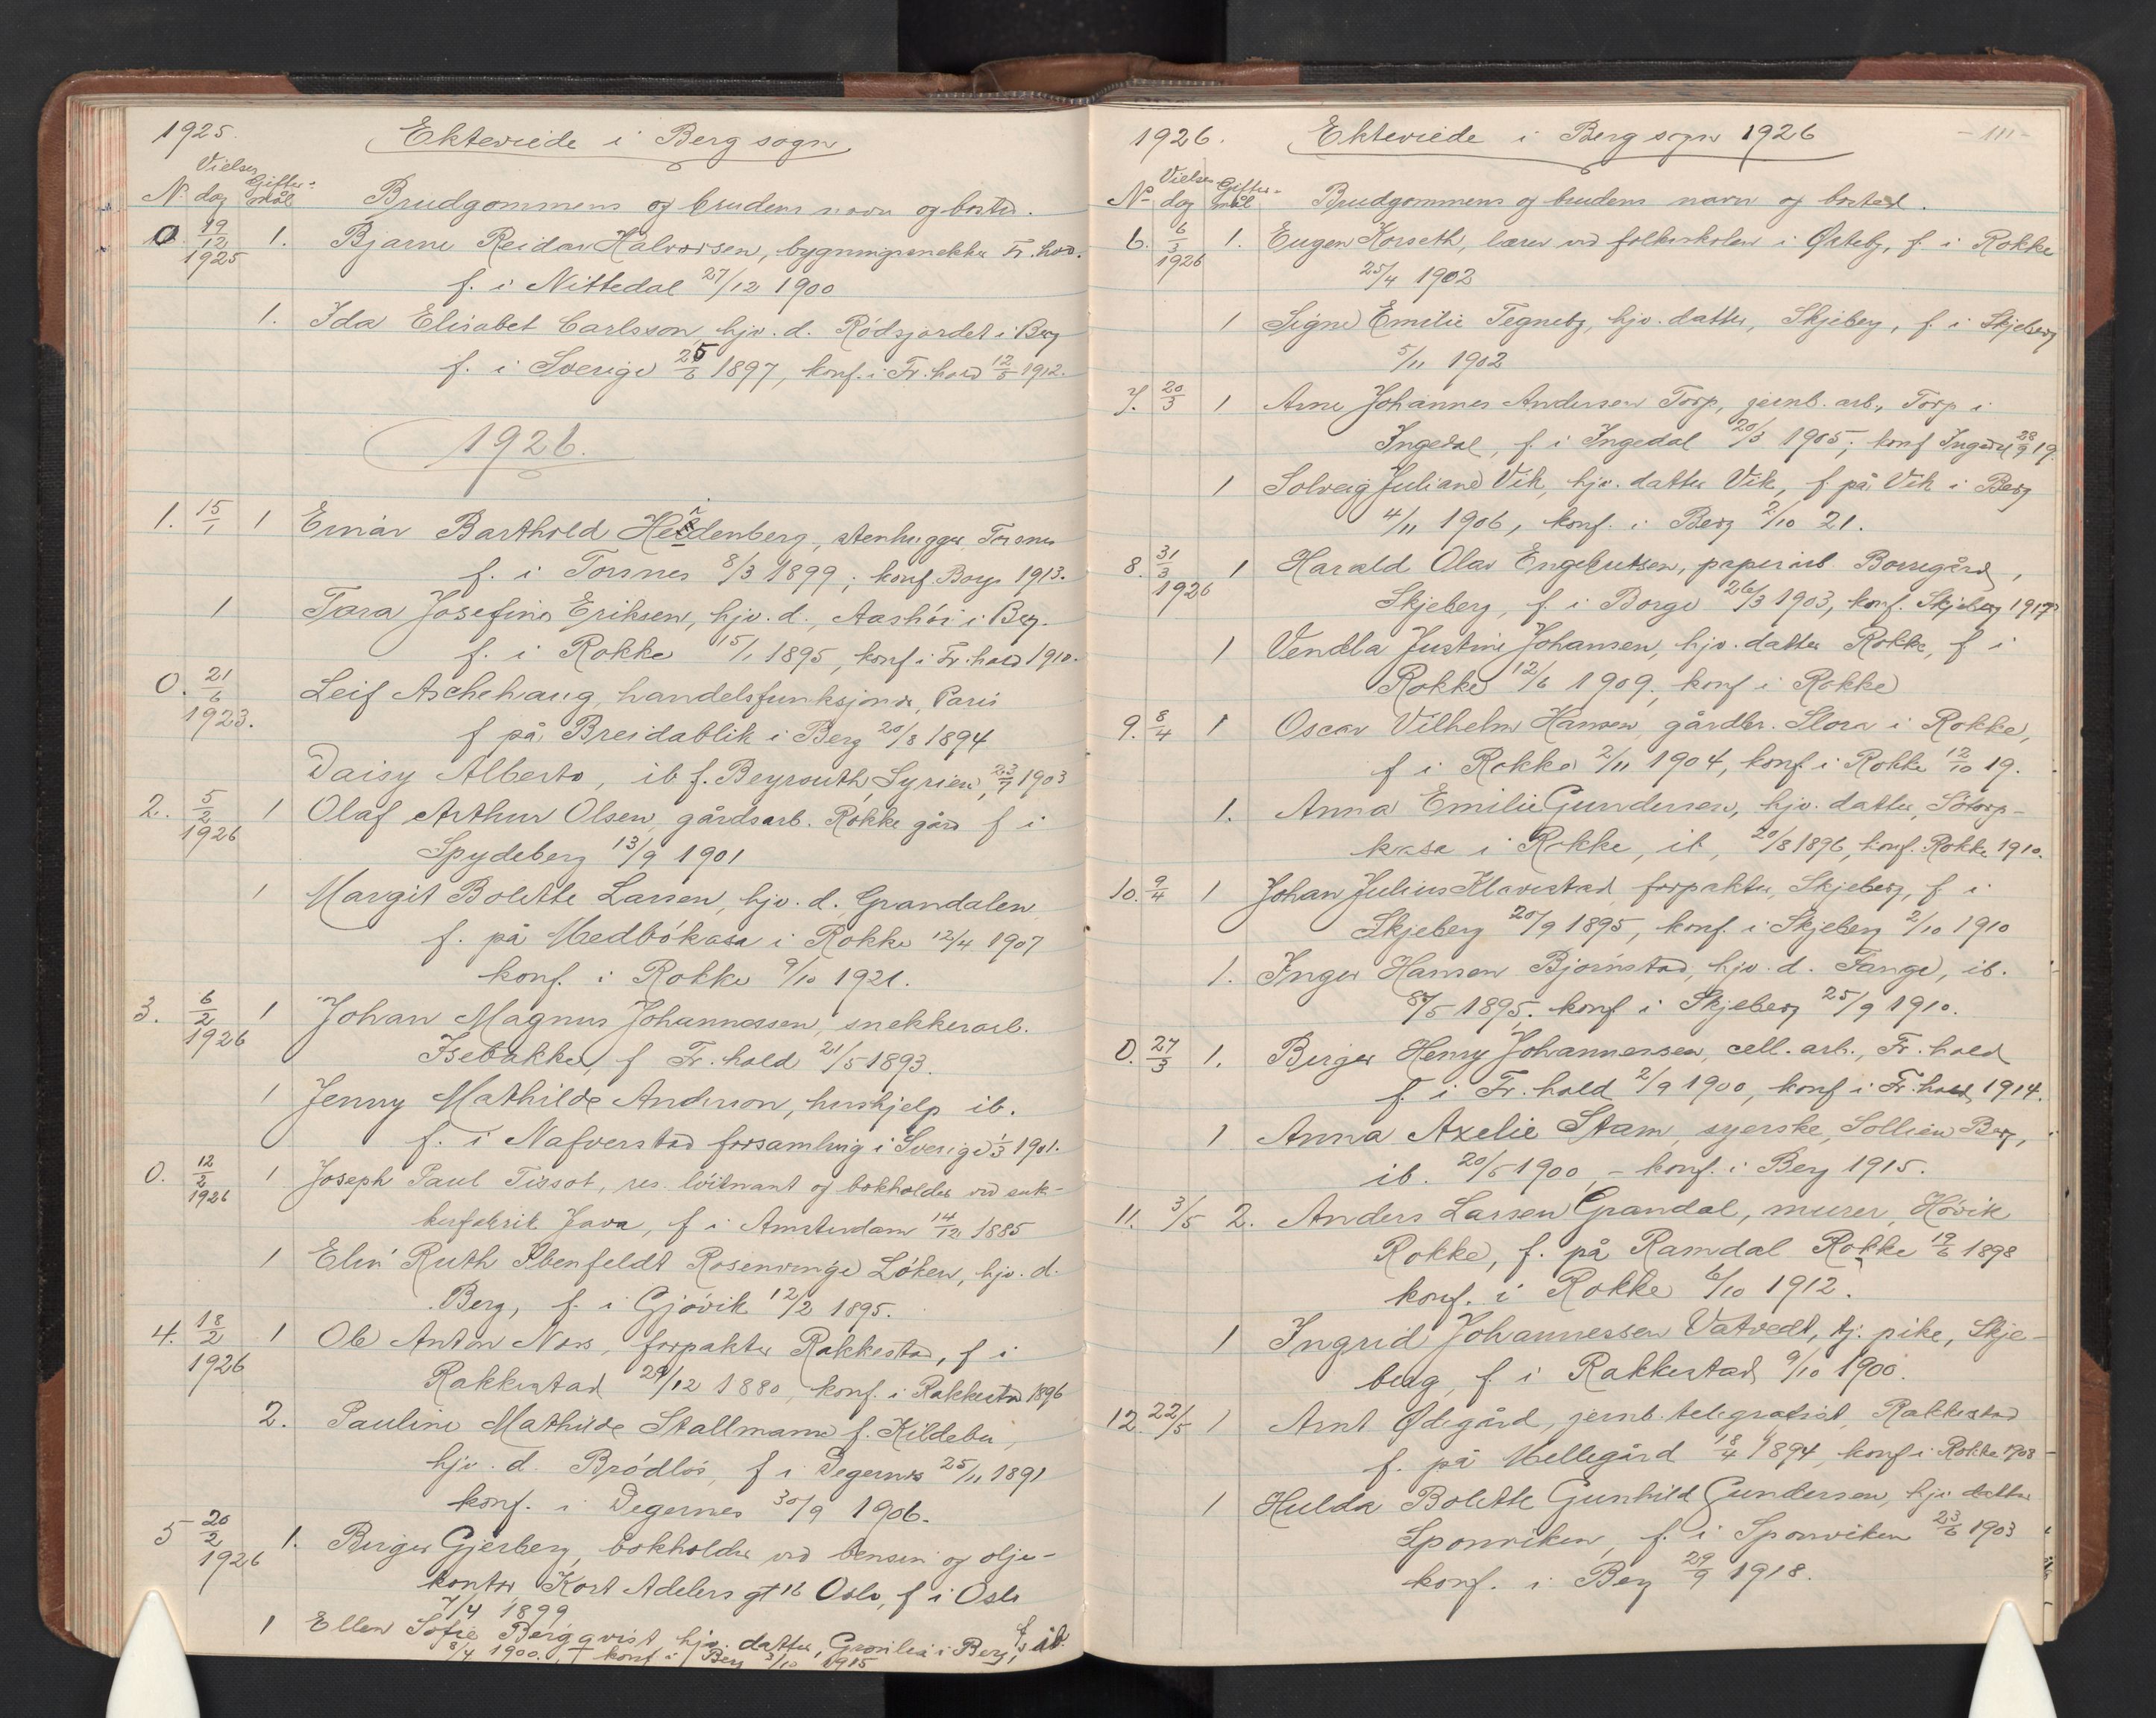 1925.
Ekteviede i Berg sogn
Vielses Gifter-
No dag mål Brudgommens og brudens navn og bosted.
0. 19/12 1925 1. Bjarne Reidar Halvorsen, bygningssnekker Fr.hald.
f. i Nittedal 27/12 1900
1. Ida Elisabet Carlsson, hjv. d. Rödsjordet i Berg
f. i Sverige 25/6 1897, konf. i Fr.hald 12/5 1912.
1926.
1. 15/1 1 Einar Barthold Heidenberg, stenhugger, Torsnes
f. i Torsnes 8/3 1899; konf. Borge 1913.
1 Tora Josefine Eriksen, hjv. d., Aashöi i Berg.
f. i Rokke 15/1 1895, konf i Fr.hald 1910.
0. 21/6 1923. Leif Aschehaug, handelsfunksjonær, Paris
f på Breidablik i Berg 20/8 1894
Daisy Alberto, ib f. Beyrouth, Syrien, 23/7 1903
2. 5/2 1926 1 Olaf Arthur Olsen, gårdsarb. Rokke gård f i
Spydeberg 13/9 1901
1 Margit Bolette Larsen, hjv. d. Grandalen
f. på Medbökasa i Rokke 12/4 1907
konf. i Rokke 9/10 1921.
3. 6/2 1926 1 Johan Magnus Johannessen, snekkerarb.
Isebakke, f Fr.hald 21/5 1893.
1 Jenny Mathilde Anderson, hushjelp ib.
f. i Nafverstad forsamling i Sverige 1/3 1901.
0. 12/2 1926 1 Joseph Paul Tissot, res. löitnant og bokholder ved suk-
kerfabrik Java, f i Amsterdam 14/12 1885
1 Elin Ruth Ibenfeldt Rosenvinge Löken, hjv. d.
Berg, f. i Gjövik 12/2 1895.
4. 18/2 1926 1 Ole Anton Nærs, forpakter Rakkestad, f i
Rakkestad 29/12 1880, konf. i Rakkestad 1896
2. Pauline Mathilde Stallmann f. Kildebu,
hjv. d. Brödlös, f i Degernes 25/11 1891
konf. i Degernes 30/9 1906.
5 20/2 1926 1. Birger Gjerberg, bokholder ved bensin og olje-
kontor Kort Adelers gt 16 Oslo, f i Oslo
7/4 1899
1 Ellen Sofie Bergqvist hjv. datter, Grönlia i Berg, f. ib.
8/4 1900. konf i Berg 3/10 1915
1926. Ekteviede i Berg sogn 1926 - 111 -
Vielses Gifter-
No dag mål Brudgommens og brudens navn og bosted.
6. 6/3 1926 1. Eugen Korseth, lærer ved folkeskolen i Örsteby, f. i Rokke
25/4 1902
1 Signe Emilie Tegneby, hjv. datter, Skjeberg, f. i Skjeberg
5/11 1902
7. 20/3 1 Arne Johannes Andersen Torp, jernb. arb., Torp i
Ingedal, f. i Ingedal 20/3 1905; konf Ingedal 28/9 19.
1 Solveig Juliane Vik, hjv. datter Vik, f. på Vik i Berg
4/11 1906, konf. i Berg 2/10 21.
8. 31/3 1926 1 Harald Olav Engebretsen, papirarb. Borregård,
Skjeberg, f. i Borge 26/3 1903, konf. Skjeberg 1917
1 Vendla Justine Johansen, hjv. datter Rokke, f i
Rokke 12/6 1909, konf i Rokke
9. 8/4 1 Oscar Vilhelm Hansen, gårdbr. Slora i Rokke,
f i Rokke 2/11 1904, konf i Rokke 12/10 19.
1. Anna Emilie Gundersen, hjv. datter, Sötorp-
kasa i Rokke, ib, 20/8 1896, konf. Rokke 1910.
10. 9/4 1 Johan Julius Klavestad, forpakter, Skjeberg, f i
Skjeberg 20/9 1895, konf. i Skjeberg 2/10 1910
1. Inger Hansen Bjørnstad, hjv. d. Tange, ib.
/5 1895. konf i Skjeberg 25/9 1910.
0. 27/3 1. Birger Henry Johannessen, cell. arb., Fr.hald
f. i Fr.hald 2/9 1900, konf i Fr.hald 1914.
1 Anna Axelie Stam, syerske, Sollien Berg,
ib. 20/5 1900 - konf. i Berg 1915.
11. 3/5 2. Anders Larsen Grandal, murer, Hövik
Rokke, f. på Ramdal Rokke 19/6 1898
konf. i Rokke 6/10 1912.
1 Ingrid Johannessen Vatvedt, tj. pike, Skje-
berg, f i Rakkestad 9/10 1900.
12. 22/5 1 Arnt Ødegård, jernb. telegrafist, Rakkestad
f. på Mellegård 18/4 1894, konf i Rokke 1908
1 Hulda Bolette Gunhild Gundersen, hjv datter
Sponviken, f. i Sponviken 23/6 1903
konf. i Berg 29/9 1918.